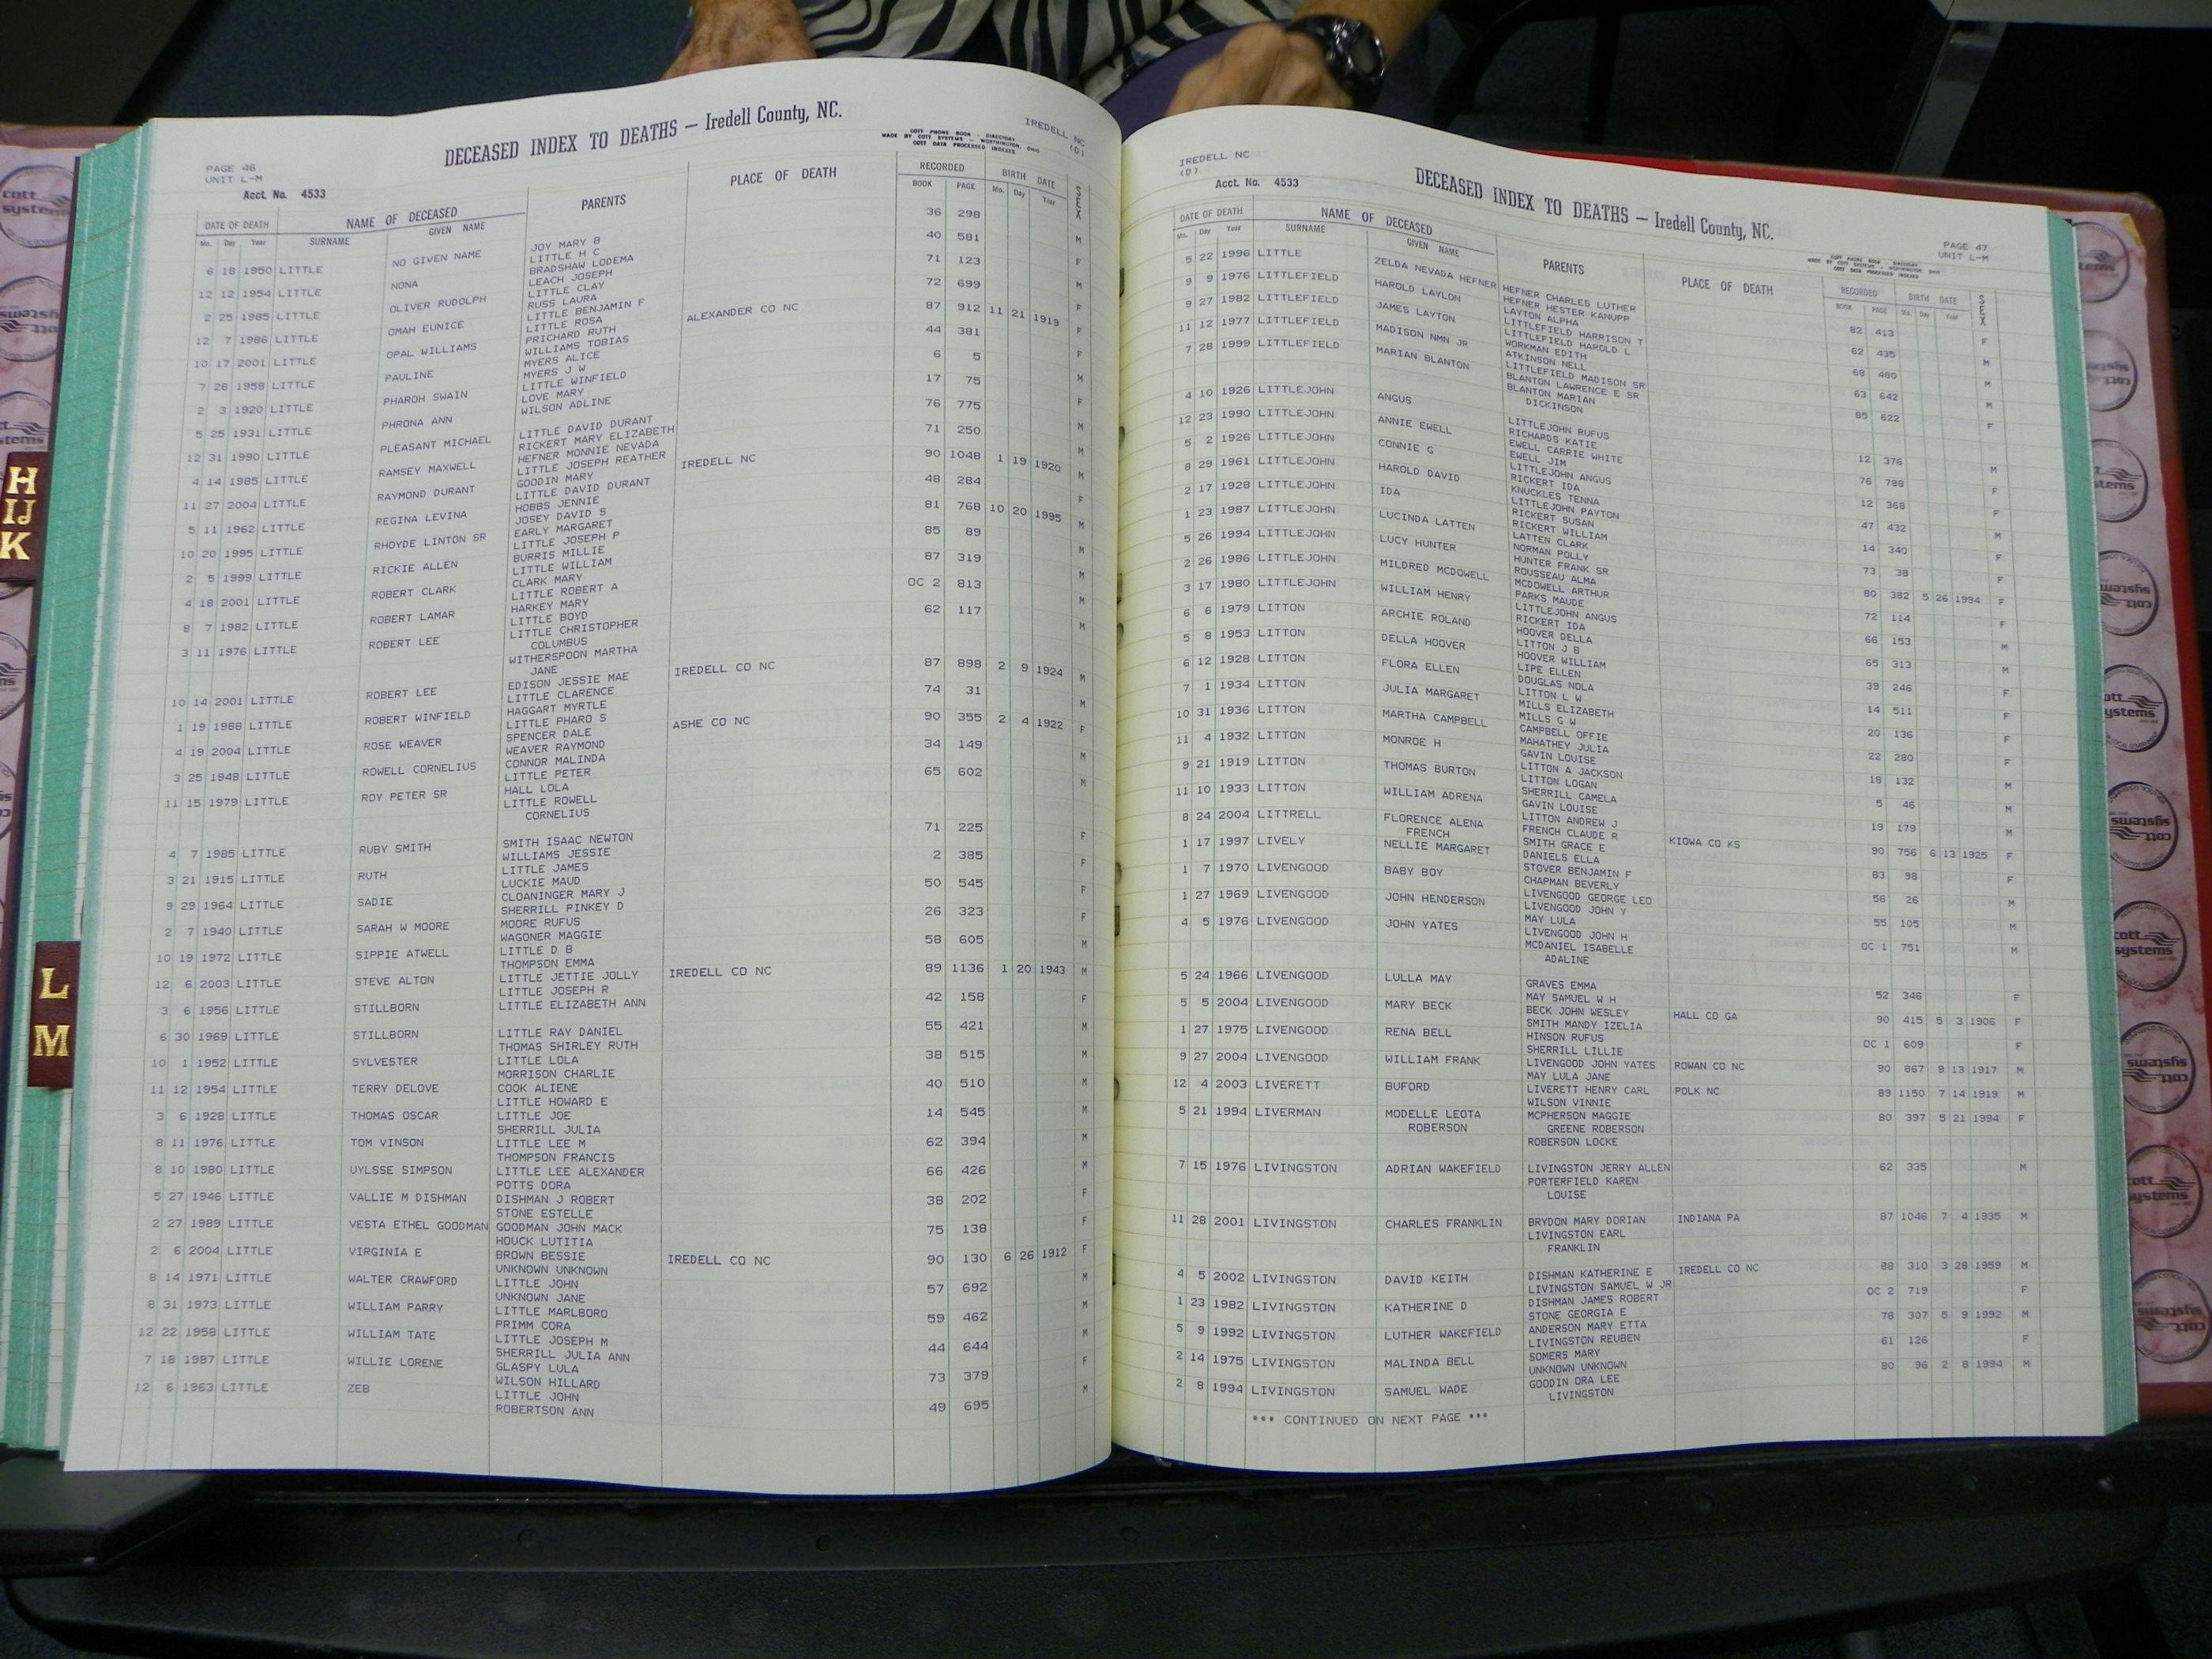 DECEASED INDEX TO DEATHS — Iredell County, NC.
IREDELL NC
(D)
PAGE 46
UNIT L-M
Acct. No. 4533
COTT PHONE BOOK - DIRECTORY
MADE BY COTT SYSTEMS - WORTHINGTON, OHIO
COTT DATA PROCESSED INDEXES
DATE OF DEATH NAME OF DECEASED PARENTS PLACE OF DEATH RECORDED BIRTH DATE SEX
Mo. Day Year SURNAME GIVEN NAME BOOK PAGE Mo. Day Year
6 18 1950 LITTLE NO GIVEN NAME JOY MARY B 36 298 M
LITTLE H C
12 12 1954 LITTLE NONA BRADSHAW LODEMA 40 581 F
LEACH JOSEPH
2 25 1985 LITTLE OLIVER RUDOLPH LITTLE CLAY 71 123 M
RUSS LAURA
12 7 1986 LITTLE OMAH EUNICE LITTLE BENJAMIN F 72 699 F
LITTLE ROSA
10 17 2001 LITTLE OPAL WILLIAMS PRICHARD RUTH ALEXANDER CO NC 87 912 11 21 1919 F
WILLIAMS TOBIAS
7 28 1958 LITTLE PAULINE MYERS ALICE 44 381
MYERS J W
2 3 1920 LITTLE PHAROH SWAIN LITTLE WINFIELD 6 5 M
LOVE MARY
5 25 1931 LITTLE PHRONA ANN WILSON ADLINE 17 75 F
12 31 1990 LITTLE PLEASANT MICHAEL LITTLE DAVID DURANT 76 775 M
RICKERT MARY ELIZABETH
4 14 1985 LITTLE RAMSEY MAXWELL HEFNER MONNIE NEVADA 71 250 M
LITTLE JOSEPH REATHER
11 27 2004 LITTLE RAYMOND DURANT GOODIN MARY IREDELL NC 90 1048 1 19 1920 M
LITTLE DAVID DURANT
5 11 1962 LITTLE REGINA LEVINA HOBBS JENNIE 48 284 F
JOSEY DAVID S
10 20 1995 LITTLE RHOYDE LINTON SR EARLY MARGARET 81 768 10 20 1995 M
LITTLE JOSEPH P
2 5 1999 LITTLE RICKIE ALLEN BURRIS MILLIE 85 89 M
LITTLE WILLIAM
4 18 2001 LITTLE ROBERT CLARK CLARK MARY 87 319 M
LITTLE ROBERT A
8 7 1982 LITTLE ROBERT LAMAR HARKEY MARY DC 2 813 M
LITTLE BOYD
3 11 1976 LITTLE ROBERT LEE LITTLE CHRISTOPHER 62 117 M
COLUMBUS
WITHERSPOON MARTHA
JANE
10 14 2001 LITTLE ROBERT LEE EDISON JESSIE MAE IREDELL CO NC 87 898 2 9 1924 M
LITTLE CLARENCE
1 19 1988 LITTLE ROBERT WINFIELD HAGGART MYRTLE 74 31 M
LITTLE PHARO S
4 19 2004 LITTLE ROSE WEAVER SPENCER DALE ASHE CO NC 90 355 2 4 1922 F
WEAVER RAYMOND
3 25 1948 LITTLE ROWELL CORNELIUS CONNOR MALINDA 34 149 M
LITTLE PETER
11 15 1979 LITTLE ROY PETER SR HALL LOLA 65 602 M
LITTLE ROWELL
CORNELIUS
4 7 1985 LITTLE RUBY SMITH SMITH ISAAC NEWTON 71 225 F
WILLIAMS JESSIE
3 21 1915 LITTLE RUTH LITTLE JAMES 2 385 F
LUCKIE MAUD
9 29 1964 LITTLE SADIE CLOANINGER MARY J 50 545 F
SHERRILL PINKEY D
2 7 1940 LITTLE SARAH W MOORE MOORE RUFUS 26 323 F
WAGONER MAGGIE
10 19 1972 LITTLE SIPPIE ATWELL LITTLE D B 58 605 M
THOMPSON EMMA
12 6 2003 LITTLE STEVE ALTON LITTLE JETTIE JOLLY IREDELL CO NC 89 1136 1 20 1943 M
LITTLE JOSEPH R
3 6 1956 LITTLE STILLBORN LITTLE ELIZABETH ANN 42 158 F
6 30 1969 LITTLE STILLBORN LITTLE RAY DANIEL 55 421 M
THOMAS SHIRLEY RUTH
10 1 1952 LITTLE SYLVESTER LITTLE LOLA 38 515 M
MORRISON CHARLIE
11 12 1954 LITTLE TERRY DELOVE COOK ALIENE 40 510 M
LITTLE HOWARD E
3 6 1928 LITTLE THOMAS OSCAR LITTLE JOE 14 545 M
SHERRILL JULIA
8 11 1976 LITTLE TOM VINSON LITTLE LEE M 62 394 M
THOMPSON FRANCIS
8 10 1980 LITTLE UYLSSE SIMPSON LITTLE LEE ALEXANDER 66 426 M
POTTS DORA
5 27 1946 LITTLE VALLIE M DISHMAN DISHMAN J ROBERT 38 202 F
STONE ESTELLE
2 27 1989 LITTLE VESTA ETHEL GOODMAN GOODMAN JOHN MACK 75 138 F
HOUCK LUTITIA
2 6 2004 LITTLE VIRGINIA E BROWN BESSIE IREDELL CO NC 90 130 6 26 1912 F
UNKNOWN UNKNOWN
8 14 1971 LITTLE WALTER CRAWFORD LITTLE JOHN 57 692 M
UNKNOWN JANE
8 31 1973 LITTLE WILLIAM PARRY LITTLE MARLBORO 59 462 M
PRIMM CORA
12 22 1958 LITTLE WILLIAM TATE LITTLE JOSEPH M 44 644 M
SHERRILL JULIA ANN
7 18 1987 LITTLE WILLIE LORENE GLASPY LULA 73 379 F
WILSON HILLARD
12 6 1963 LITTLE ZEB LITTLE JOHN 49 695 M
ROBERTSON ANN
IREDELL NC
(D)
Acct. No. 4533
DECEASED INDEX TO DEATHS — Iredell County, NC.
PAGE 47
UNIT L-M
DATE OF DEATH NAME OF DECEASED PARENTS PLACE OF DEATH RECORDED BIRTH DATE SEX
Mo. Day Year SURNAME GIVEN NAME BOOK PAGE Mo. Day Year
5 22 1996 LITTLE ZELDA NEVADA HEFNER HEFNER CHARLES LUTHER 82 413 F
HEFNER HESTER KANUPP
9 9 1976 LITTLEFIELD HAROLD LAYLON LAYTON ALPHA 62 435 M
LITTLEFIELD HARRISON T
9 27 1982 LITTLEFIELD JAMES LAYTON LITTLEFIELD HAROLD L 68 480 M
WORKMAN EDITH
11 12 1977 LITTLEFIELD MADISON NMN JR ATKINSON NELL 63 642 M
LITTLEFIELD MADISON SR
7 28 1999 LITTLEFIELD MARIAN BLANTON BLANTON LAWRENCE E SR 85 622 F
BLANTON MARIAN
DICKINSON
4 10 1926 LITTLEJOHN ANGUS LITTLEJOHN RUFUS 12 376 M
RICHARDS KATIE
12 23 1990 LITTLEJOHN ANNIE EWELL EWELL CARRIE WHITE 76 788 F
EWELL JIM
5 2 1926 LITTLEJOHN CONNIE G LITTLEJOHN ANGUS 12 368
RICKERT IDA
8 29 1961 LITTLEJOHN HAROLD DAVID KNUCKLES TENNA 47 432 M
LITTLEJOHN PAYTON
2 17 1928 LITTLEJOHN IDA RICKERT SUSAN 14 340 F
RICKERT WILLIAM
1 23 1987 LITTLEJOHN LUCINDA LATTEN LATTEN CLARK 73 38 F
NORMAN POLLY
5 26 1994 LITTLEJOHN LUCY HUNTER HUNTER FRANK SR 80 382 5 26 1994 F
ROUSSEAU ALMA
2 26 1986 LITTLEJOHN MILDRED MCDOWELL MCDOWELL ARTHUR 72 114 F
PARKS MAUDE
3 17 1980 LITTLEJOHN WILLIAM HENRY LITTLEJOHN ANGUS 66 153 M
RICKERT IDA
6 6 1979 LITTON ARCHIE ROLAND HOOVER DELLA 65 313 M
LITTON J B
5 8 1953 LITTON DELLA HOOVER HOOVER WILLIAM 39 246 F
LIPE ELLEN
6 12 1928 LITTON FLORA ELLEN DOUGLAS NOLA 14 511 F
LITTON L W
7 1 1934 LITTON JULIA MARGARET MILLS ELIZABETH 20 136 F
MILLS G W
10 31 1936 LITTON MARTHA CAMPBELL CAMPBELL OFFIE 22 280 F
MAHATHEY JULIA
11 4 1932 LITTON MONROE H GAVIN LOUISE 18 132 M
LITTON A JACKSON
9 21 1919 LITTON THOMAS BURTON LITTON LOGAN 5 46 M
SHERRILL CAMELA
11 10 1933 LITTON WILLIAM ADRENA GAVIN LOUISE 19 179 M
LITTON ANDREW J
8 24 2004 LITTRELL FLORENCE ALENA FRENCH CLAUDE R KIOWA CO KS 90 756 6 13 1925 F
FRENCH SMITH GRACE E
1 17 1997 LIVELY NELLIE MARGARET DANIELS ELLA 83 98 F
STOVER BENJAMIN F
1 7 1970 LIVENGOOD BABY BOY CHAPMAN BEVERLY 56 26 M
LIVENGOOD GEORGE LEO
1 27 1969 LIVENGOOD JOHN HENDERSON LIVENGOOD JOHN Y 55 105 M
MAY LULA
4 5 1976 LIVENGOOD JOHN YATES LIVENGOOD JOHN H DC 1 751 M
MCDANIEL ISABELLE
ADALINE
5 24 1966 LIVENGOOD LULLA MAY GRAVES EMMA 52 346 F
MAY SAMUEL W H
5 5 2004 LIVENGOOD MARY BECK BECK JOHN WESLEY HALL CO GA 90 415 5 3 1906 F
SMITH MANDY IZELIA
1 27 1975 LIVENGOOD RENA BELL HINSON RUFUS DC 1 609 F
SHERRILL LILLIE
9 27 2004 LIVENGOOD WILLIAM FRANK LIVENGOOD JOHN YATES ROWAN CO NC 90 867 9 13 1917 M
MAY LULA JANE
12 4 2003 LIVERETT BUFORD LIVERETT HENRY CARL POLK NC 89 1150 7 14 1919 M
WILSON VINNIE
5 21 1994 LIVERMAN MODELLE LEOTA MCPHERSON MAGGIE 80 397 5 21 1994 F
ROBERSON GREENE ROBERSON
ROBERSON LOCKE
7 15 1976 LIVINGSTON ADRIAN WAKEFIELD LIVINGSTON JERRY ALLEN 62 335 M
PORTERFIELD KAREN
LOUISE
11 28 2001 LIVINGSTON CHARLES FRANKLIN BRYDON MARY DORIAN INDIANA PA 87 1046 7 4 1935 M
LIVINGSTON EARL
FRANKLIN
4 5 2002 LIVINGSTON DAVID KEITH DISHMAN KATHERINE E IREDELL CO NC 88 310 3 28 1959 M
LIVINGSTON SAMUEL W JR
1 23 1982 LIVINGSTON KATHERINE D DISHMAN JAMES ROBERT DC 2 719 F
STONE GEORGIA E
5 9 1992 LIVINGSTON LUTHER WAKEFIELD ANDERSON MARY ETTA 78 307 5 9 1992 M
LIVINGSTON REUBEN
2 14 1975 LIVINGSTON MALINDA BELL SOMERS MARY 61 126 F
UNKNOWN UNKNOWN
2 8 1994 LIVINGSTON SAMUEL WADE GOODIN ORA LEE 80 96 2 8 1994 M
LIVINGSTON
*** CONTINUED ON NEXT PAGE ***
H
IJ
K
L
M
cott
systems